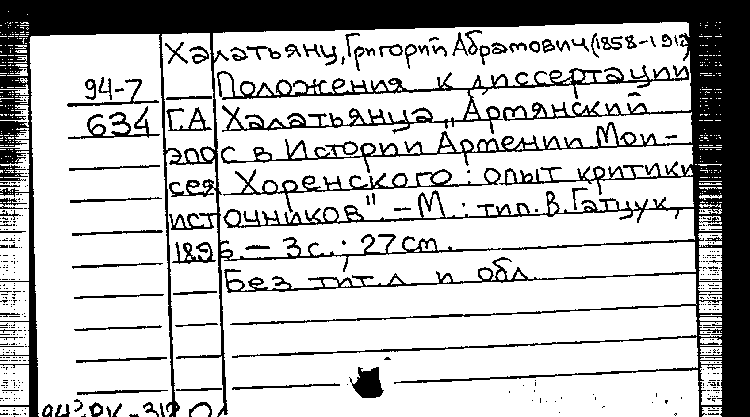 Халатьянц, Григорий Абрамович (1858-1912)
94-7 Положения к диссертации
634 Г.А. Халатьянца „Армянский
эпос в Истории Армении Мои-
сея Хоренского : опыт критики
источников". – М. : тип. В. Гатцук,
1896. – 3 с. ; 27 см.
Без тит. л и обл.